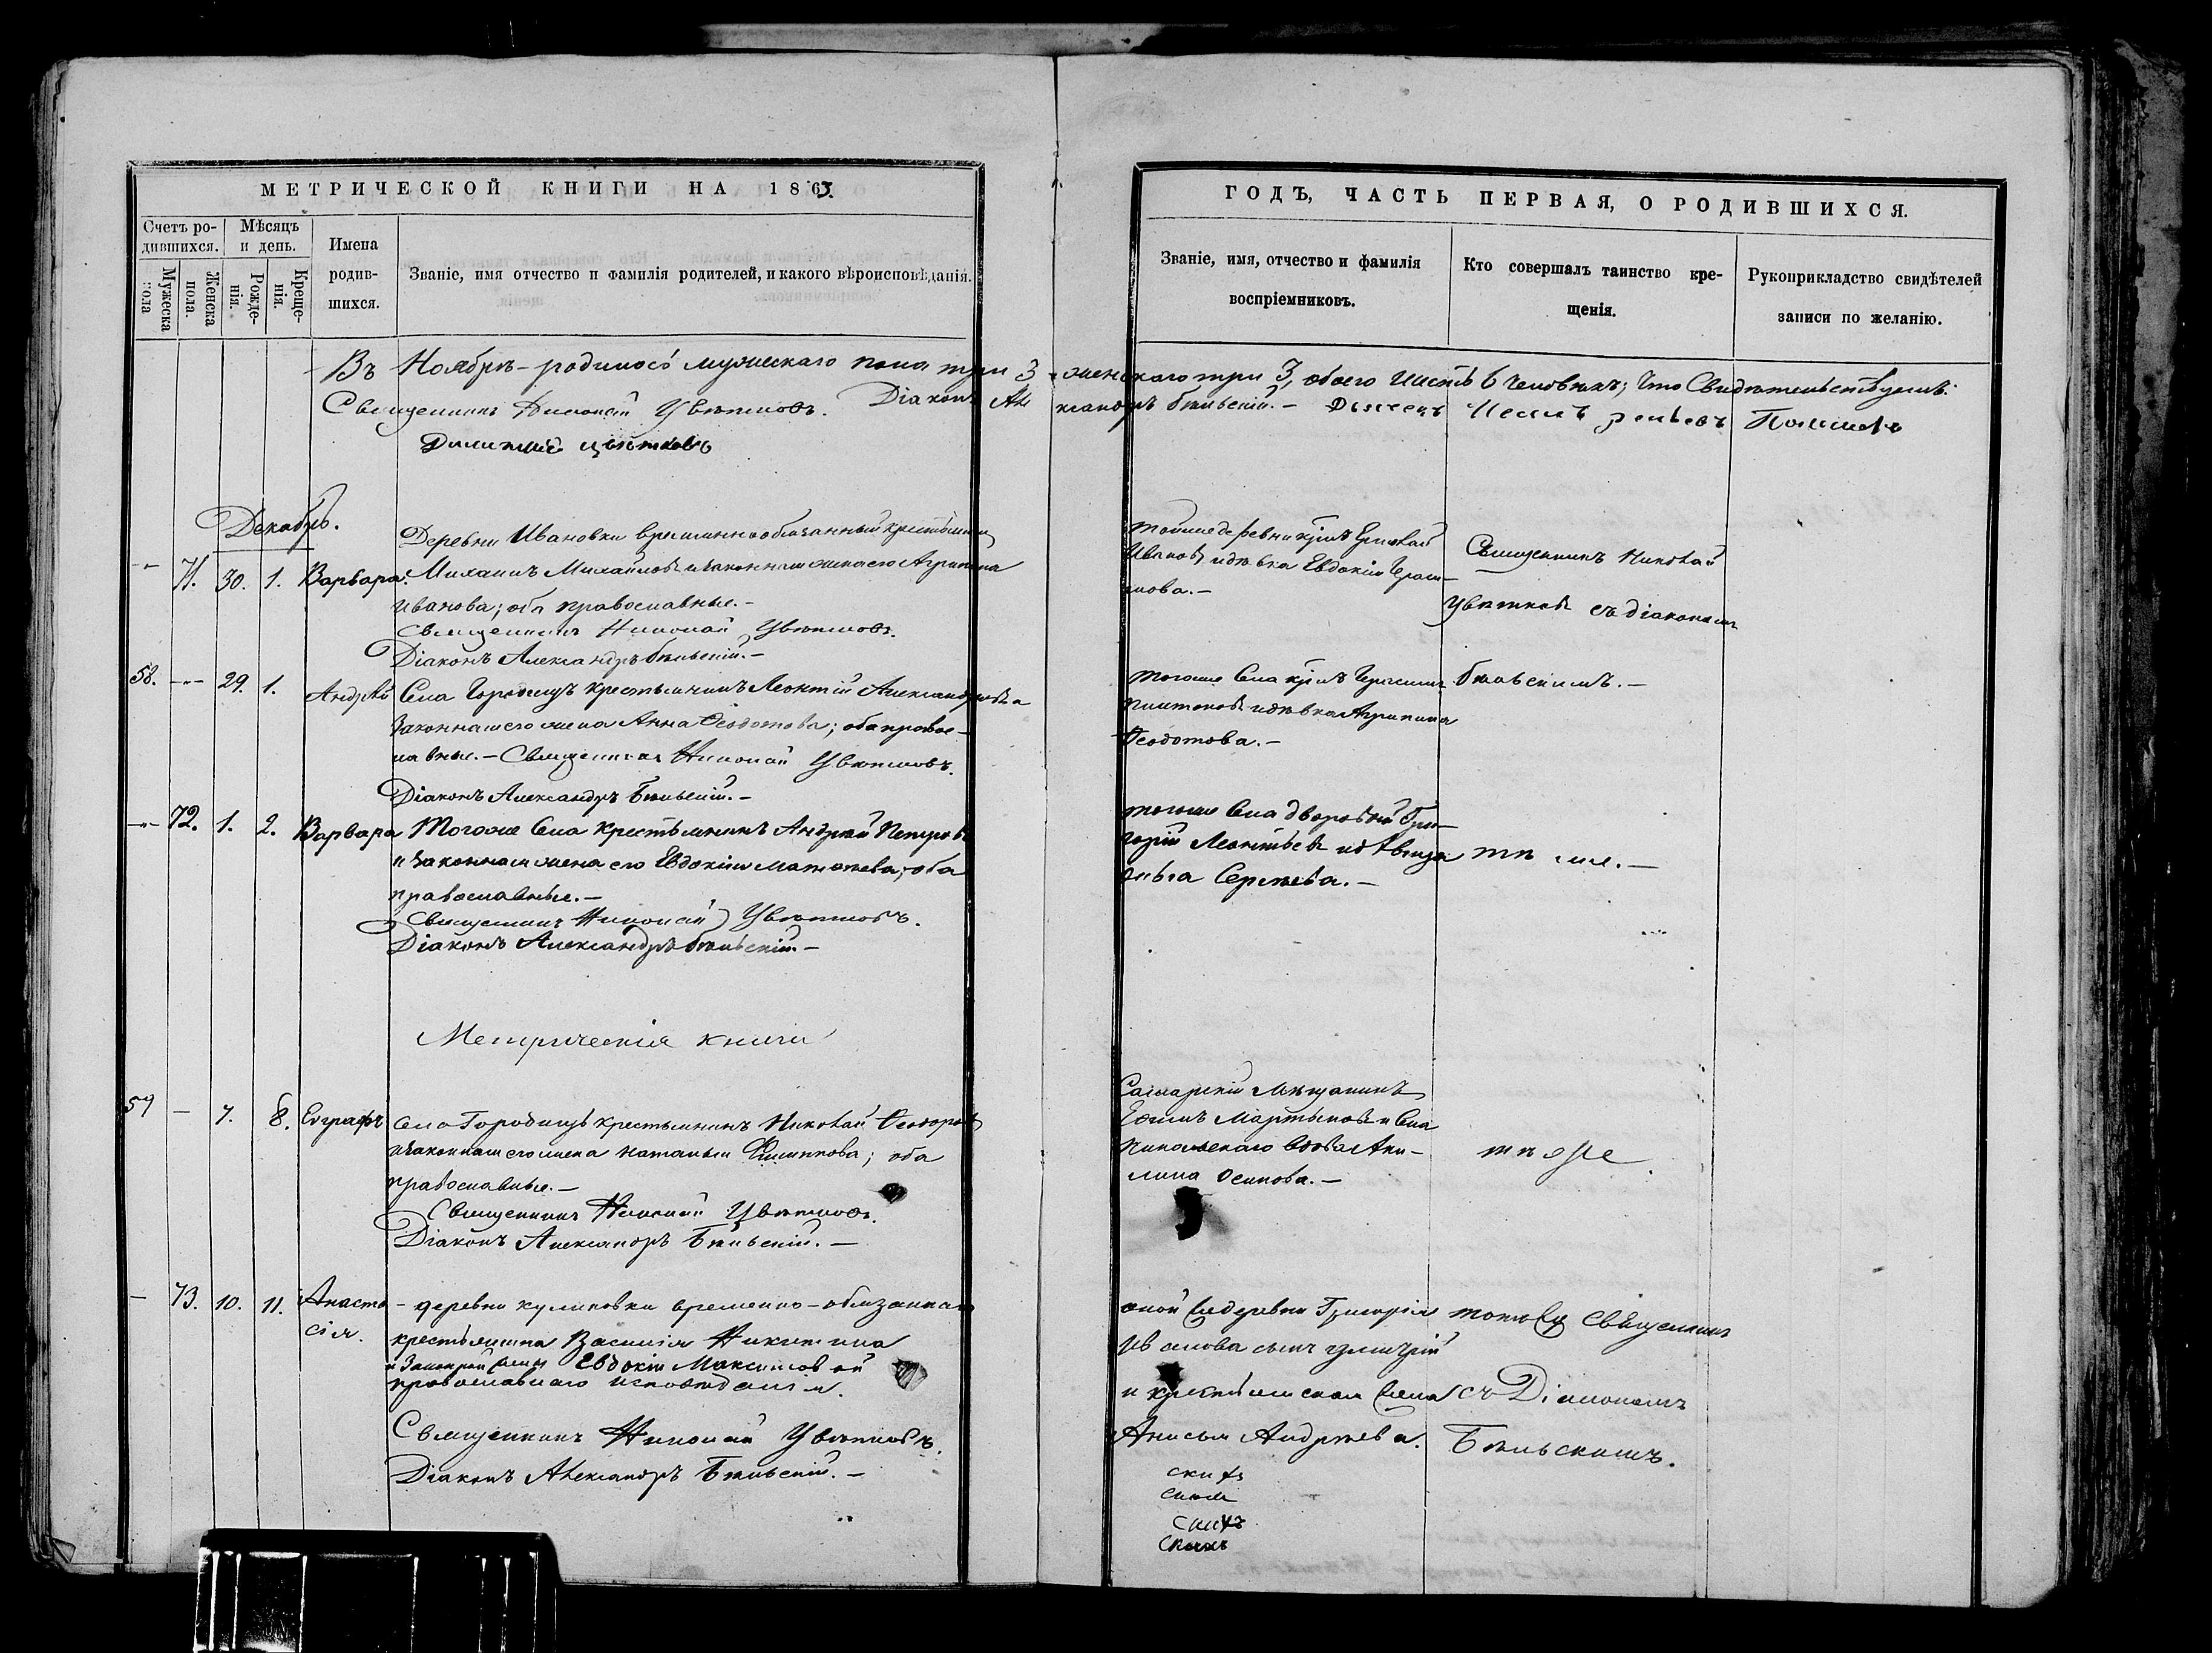 МЕТРИЧЕСКОЙ КНИГИ НА 1863.
Счетъ ро-
дившихся.
Мѣсяцъ
и день.
Мужеска
пола
Женска
пола.
Рожде-
нія.
Креще-
нія.
Имена
родив-
шихся.
Званіе, имя отчество и фамилія родителей, и какого вѣроисповѣданія.
ГОДЪ, ЧАСТЬ ПЕРВАЯ, О РОДИВШИХСЯ.
Званіе, имя, отчество и фамилія
воспріемниковъ.
Кто совершалъ таинство кре-
щенія.
Рукоприкладство свидѣтелей
записи по желанію.
Въ Ноябрѣ - родилось мужескаго пола три 3 женскаго три 3, обоего шесть 6 человѣкъ; что Свидѣтельствуемъ:
Священникъ Николай Цвѣтковъ. Діаконъ Александръ Бѣльскій. -
Димитрій Цвѣтковъ
Декабрь.
-"- 71. 30. 1. Варвара.
Деревни Ивановки временнообязанный крестьянинъ
Михаилъ Михайловъ и законная жена его Агрипина
Иванова; оба православные. -
Священникъ Николай Цвѣтковъ.
Діаконъ Александръ Бѣльскій. -
тойже деревни
Ивановъ и дѣвка Евдокія
Священникъ Николай
Цвѣтковъ съ діакономъ
Бѣльскимъ. -
58. -"- 29. 1. Андрей
Села Городищъ крестьянинъ Леонтій Александровъ и
законная его жена Анна Ѳеодотова; оба правос-
лавные. - Священникъ Николай Цвѣтковъ.
Діаконъ Александръ Бѣльскій. -
тогоже Села
и дѣвка Агрипина
Ѳеодотова. -
-"- 72. 1. 2. Варвара
Тогоже Села крестьянинъ Андрей Петровъ
и законная жена его Евдокія Матѳеева; оба
православные. -
Священникъ Николай Цвѣтковъ.
Діаконъ Александръ Бѣльскій. -
тогоже Села дворовый Гри-
горій Леонтьевъ и дѣвица
Ольга Сергѣева. -
тѣ же. -
Метрическія книги
59 - 7. 8. Евграфъ
Села Городищъ крестьянинъ Николай Ѳеодоровъ
и законная его жена Наталья Филиппова; оба
православные. -
Священникъ Николай Цвѣтковъ.
Діаконъ Александръ Бѣльскій. -
Самарскій Мѣщанинъ
Ефимъ Мартыновъ и Села
Никольскаго вдова Аку-
лина Осипова. -
тѣ же.
- 73. 10. 11. Анаста-
сія.
деревни Куликовки временно-обязаннаго
крестьянина Василія Никитина
и законной жены Евдокіи Максимовой
православнаго исповѣданія.
Священникъ Николай Цвѣтковъ.
Діаконъ Александръ Бѣльскій. -
оной же деревни Григорія
Иванова сынъ Димитрій
и крестьянская жена
Анисья Андреева.
тотъ же Священникъ
съ Діакономъ
Бѣльскимъ.